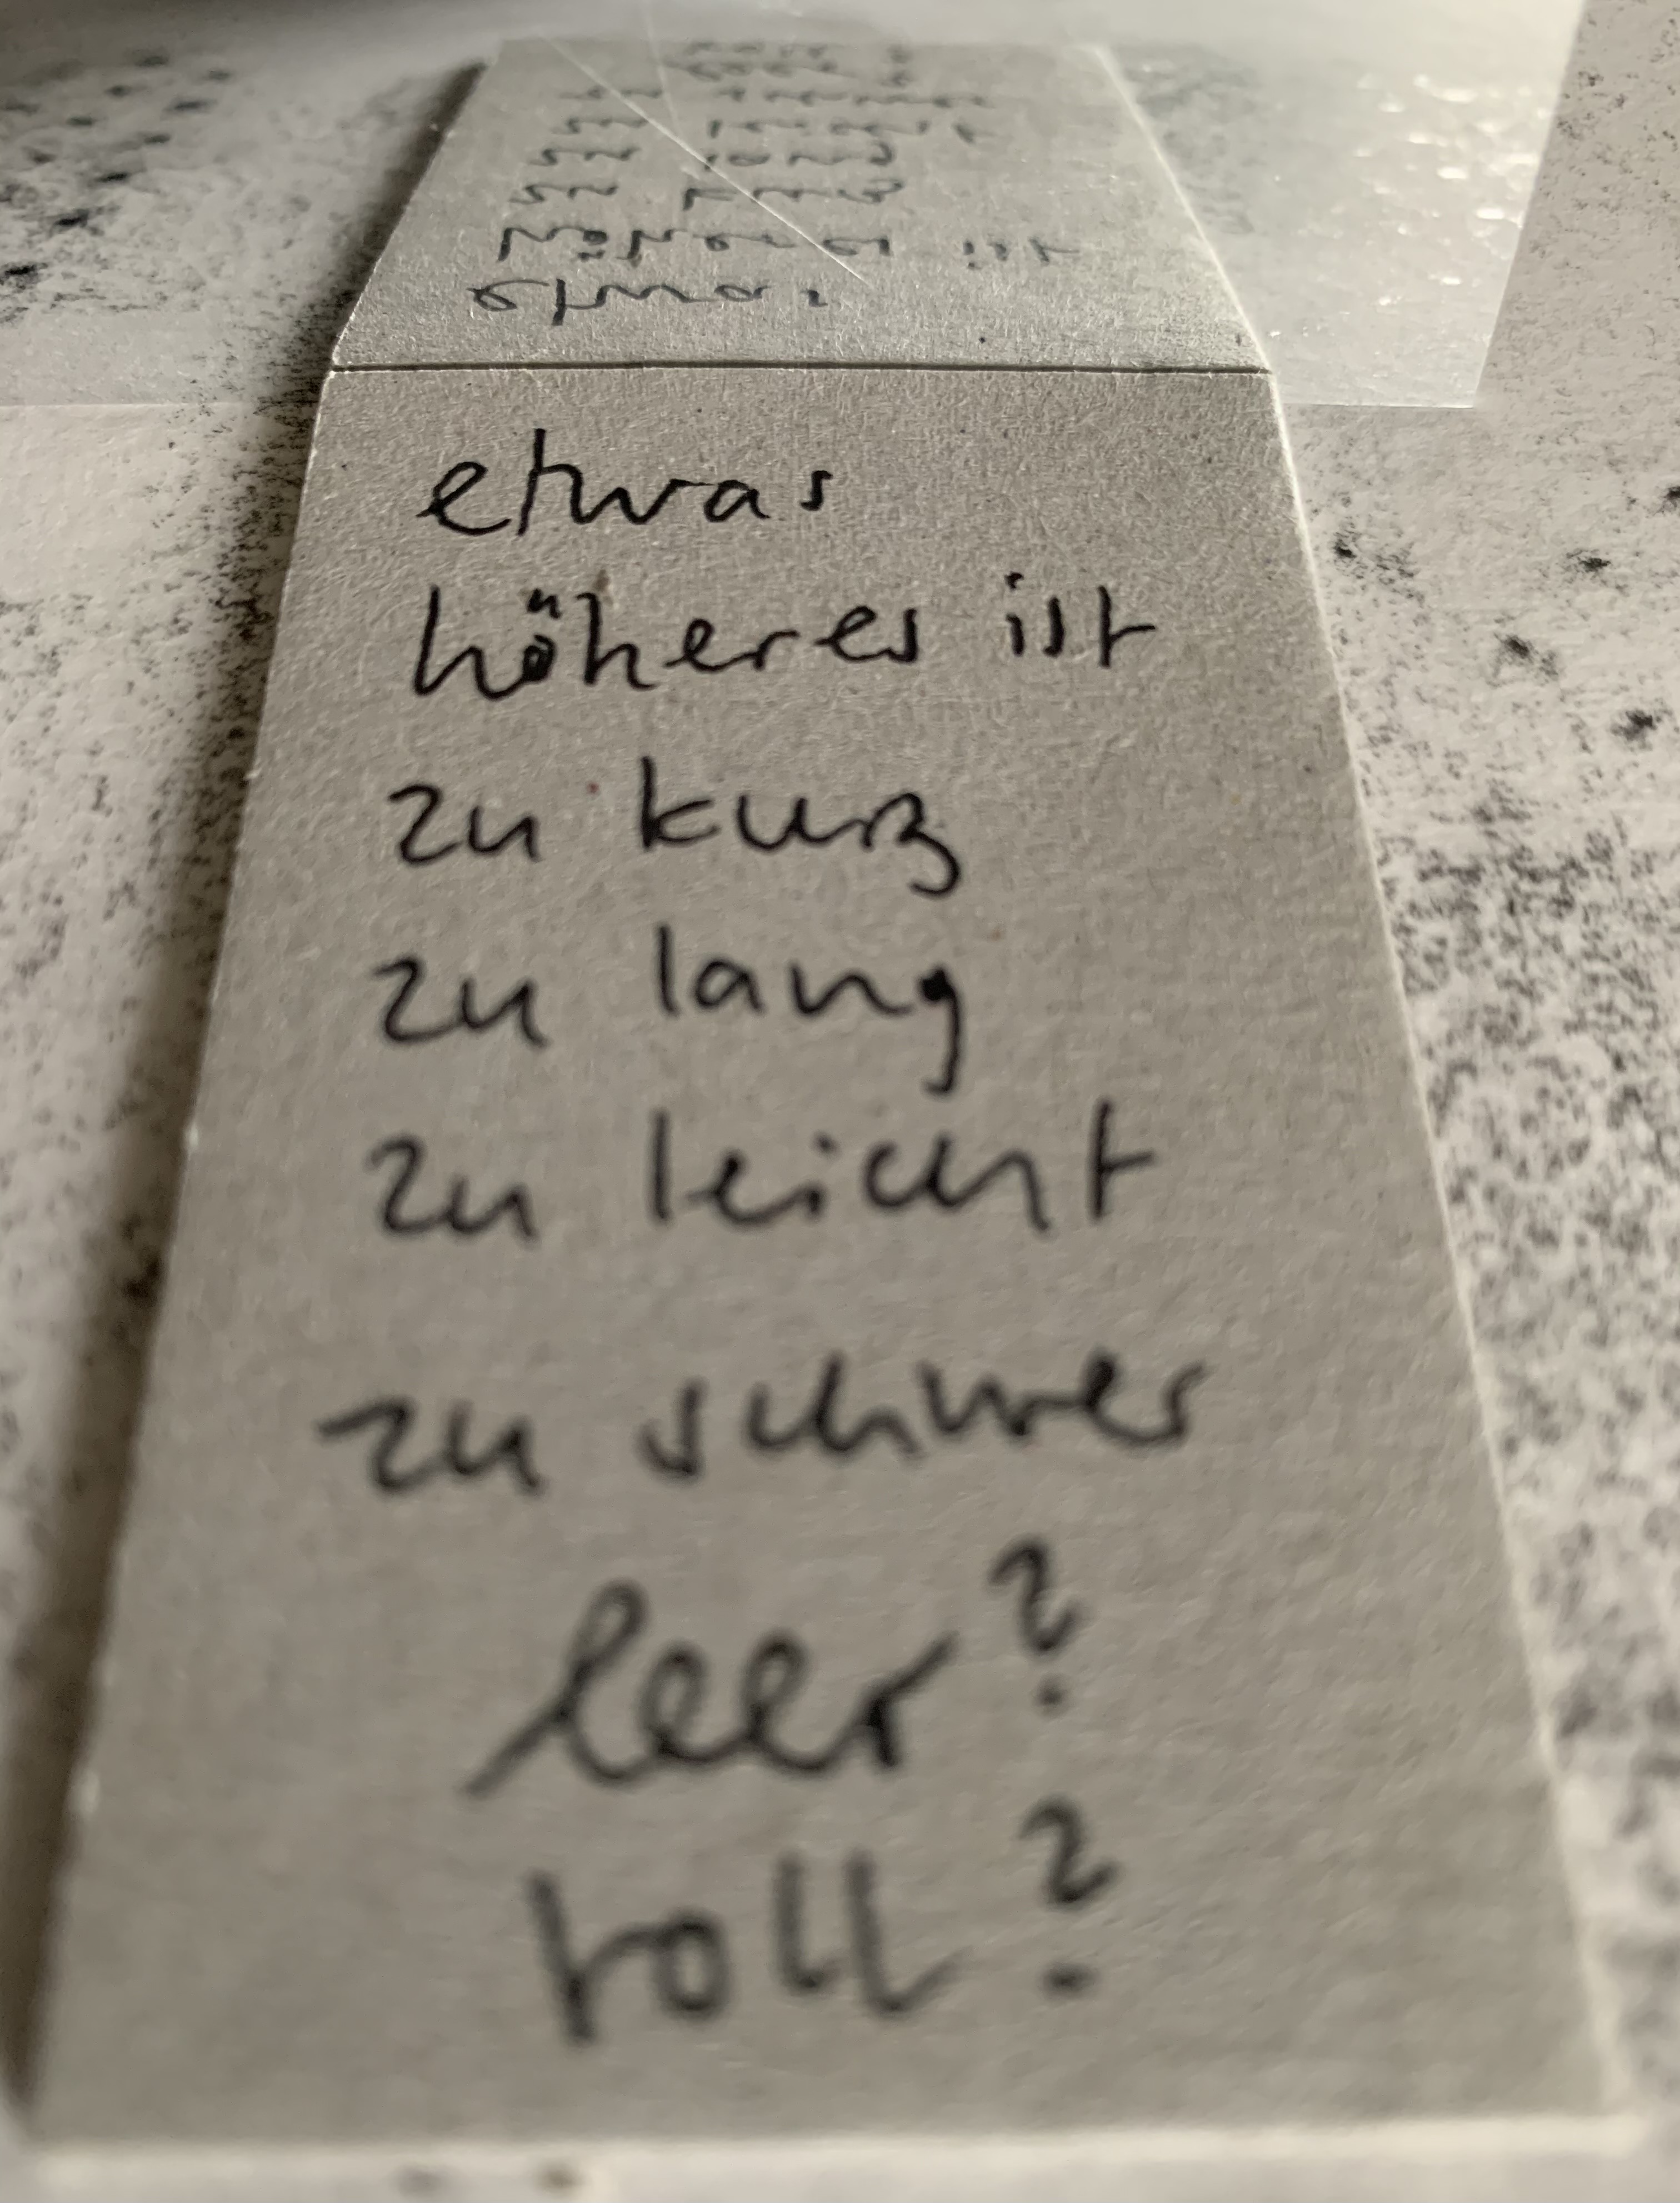 etwas
höheres ist
zu kurz
zu lang
zu leicht
zu schwer
leer?
voll?